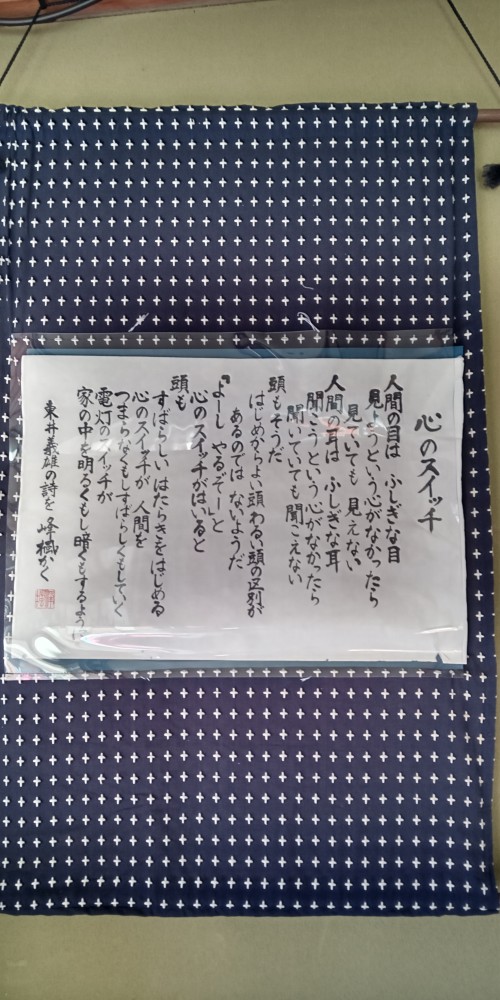 心のスイッチ
人間の目は ふしぎな目
見ようという心がなかったら
見ていても 見えない
人間の耳は ふしぎな耳
聞こうという心がなかったら
聞いていても聞こえない
頭もそうだ
はじめからよい頭 わるい頭の区別が
あるのでは ないようだ
「よーし やるぞーと
心のスイッチがはいると
頭も
すばらしい はたらきをはじめる
心のスイッチが 人間を
つまらなくもしすばらしくもしていく
電灯のスイッチが
家の中を明るくもし暗くもするように
東井義雄の詩を 峰楓かく